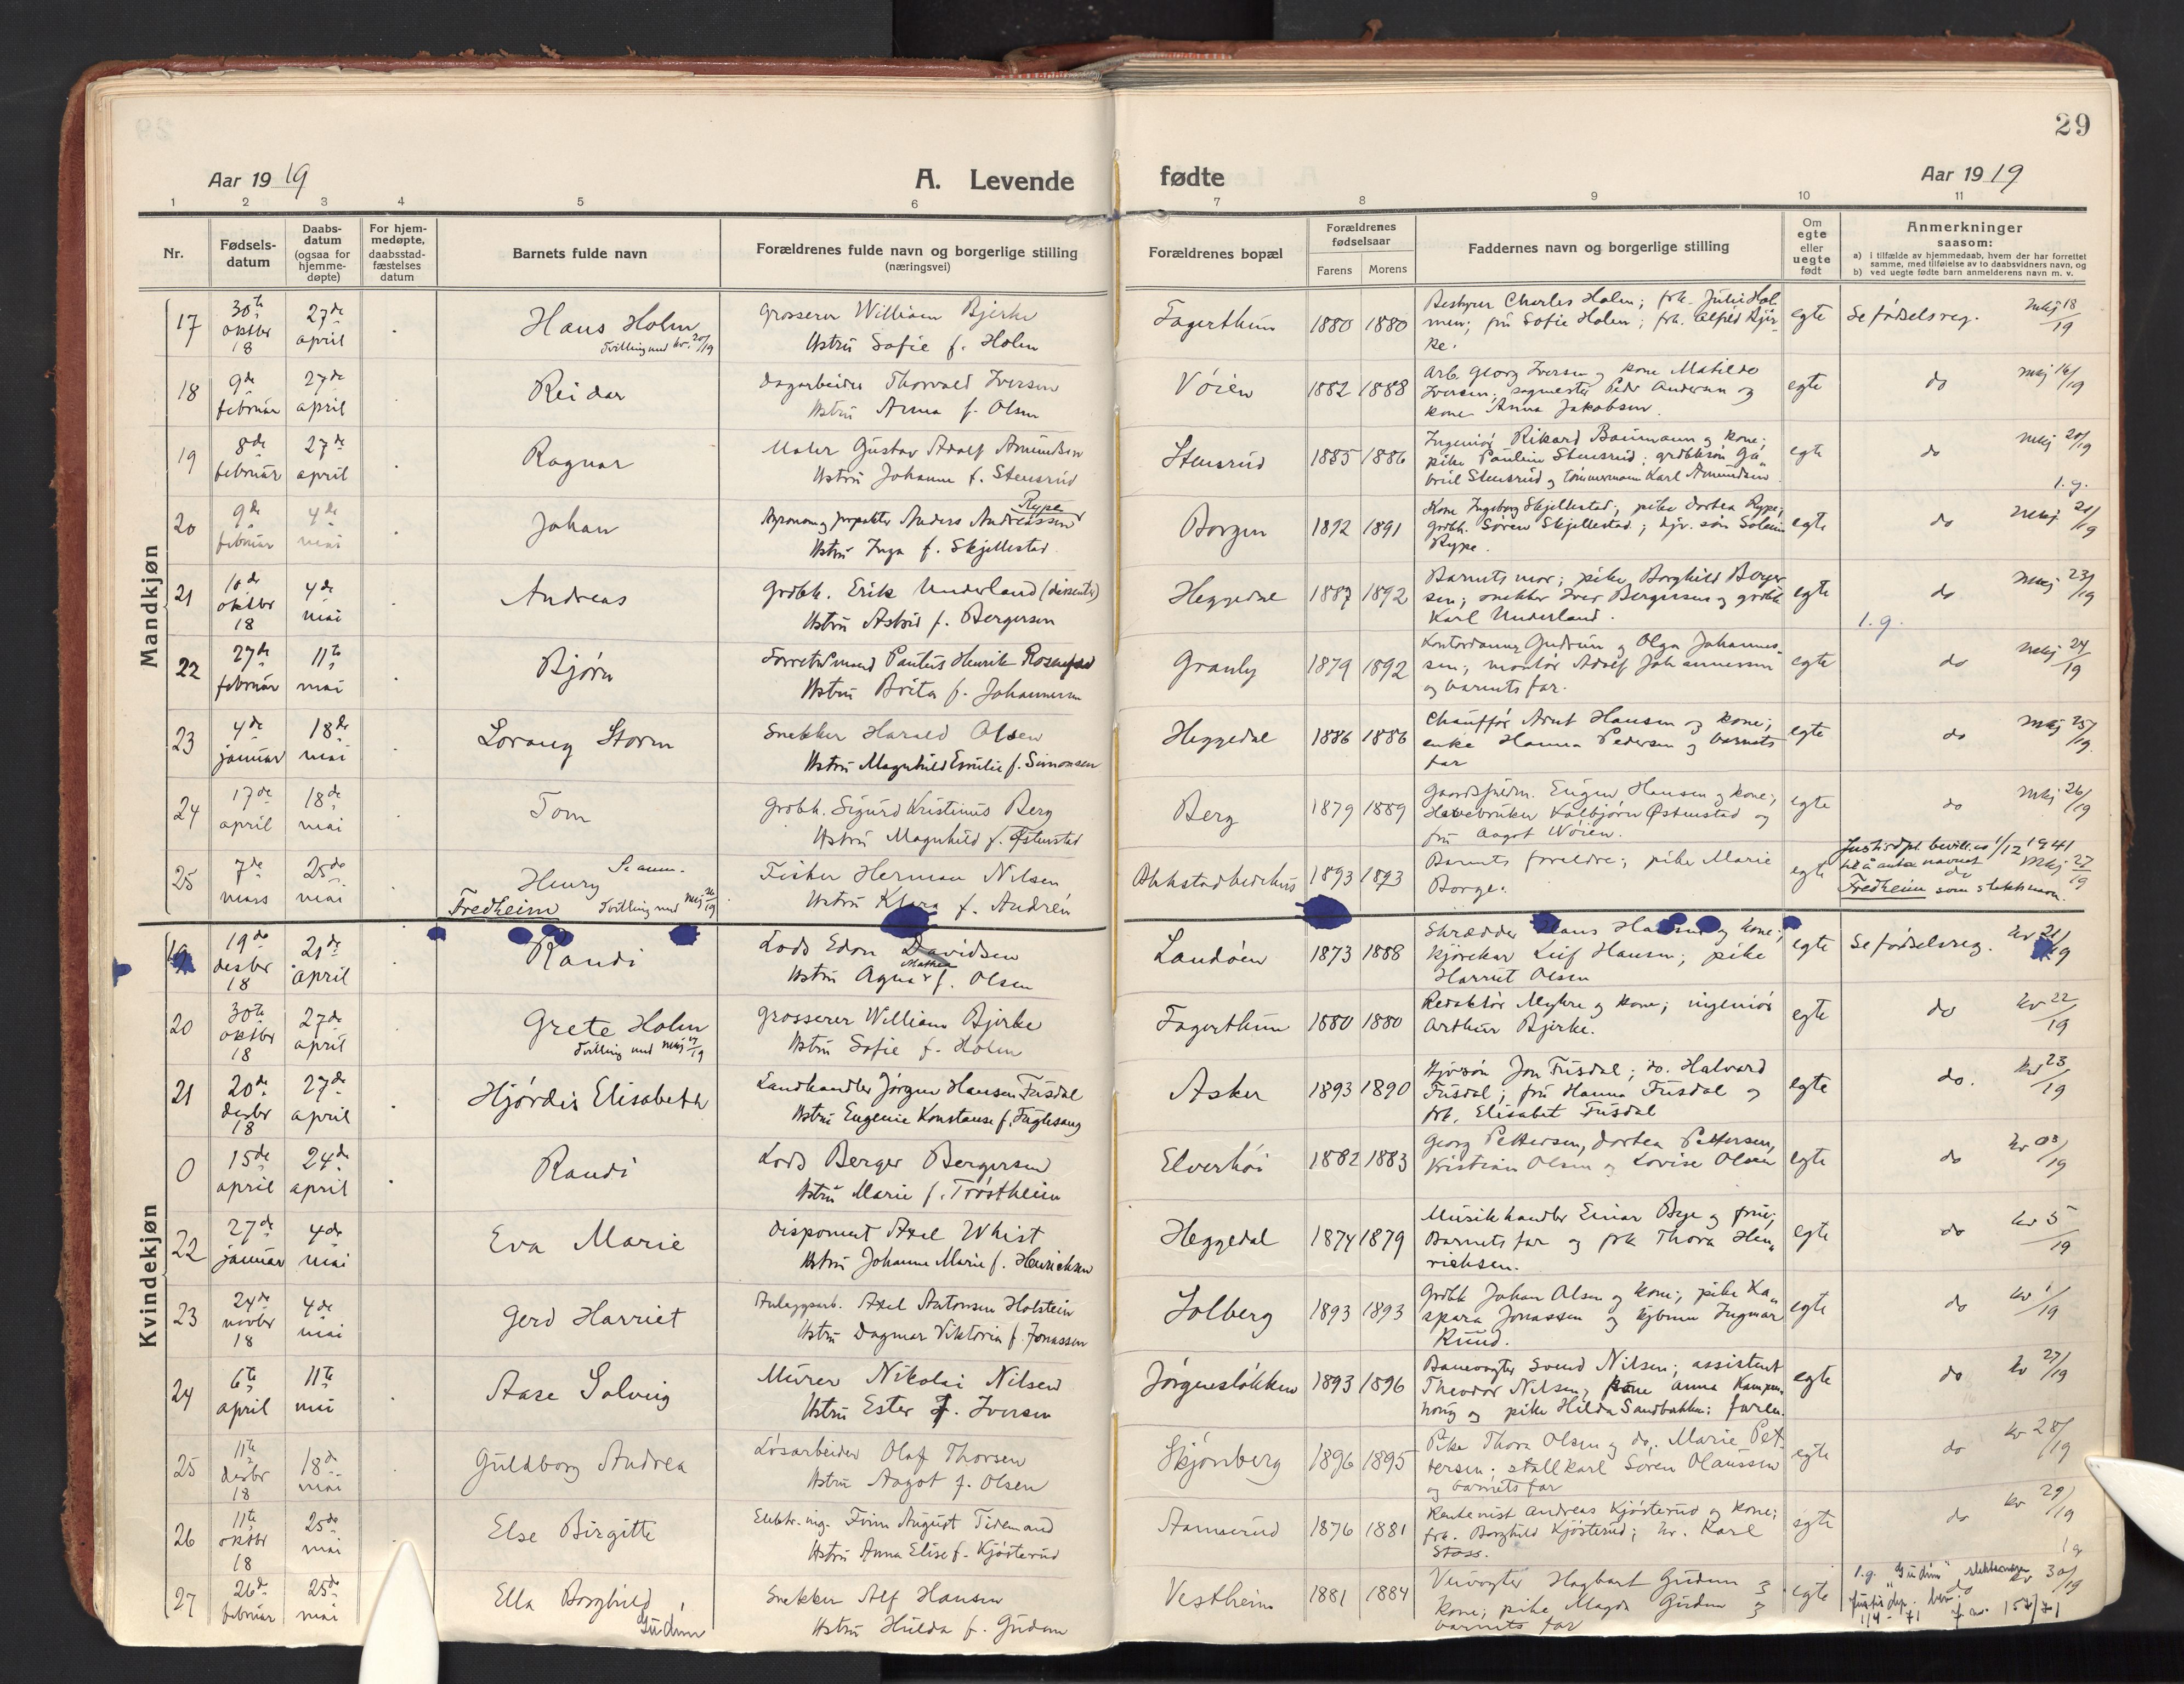 29
Aar 1919
A. Levende fødte
Aar 1919
1 2 3 4 5 6 7 8 9 10 11
Nr.
Fødsels-
datum
Daabs-
datum
(ogsaa for
hjemme-
døpte)
For hjem-
medøpte,
daabsstad-
fæstelses
datum
Barnets fulde navn
Forældrenes fulde navn og borgerlige stilling
(næringsvei)
Forældrenes bopæl
Forældrenes
fødselsaar
Farens Morens
Faddernes navn og borgerlige stilling
Om
egte
eller
uegte
født
Anmerkninger
saasom:
a) i tilfælde av hjemmedaab, hvem der har forrettet
samme, med tilføielse av to daabsvidners navn, og
b) ved uegte fødte barn anmelderens navn m. v.
Mandkjøn
17 30te oktbr 18 27de april Hans Holm Grosserer William Bjerke Fagerthun 1880 1880 Bestyrer Charles Holm; frk. Julie Hol-
Tvilling med kv. 20/19 Hstru Sofie f. Holm men; fru Sofie Holm; frk. Alfild Bjer-
ke. egte Se fødselsreg. mkj 18/19
18 9de februar 27de april Reidar Dagarbeider Thorvald Iversen Vøien 1882 1888 Arb. Georg Iversen og kone Matilde
Hstru Anna f. Olsen Iversen; sagmester Peder Andersen og
kone Anna Jakobsen. egte do mkj 16/19
19 8de februar 27de april Ragnar Maler Gustav Adolf Amundsen Stensrud 1885 1886 Ingeniør Rikard Baumann og kone;
Hstru Johanne f. Stensrud pike Pauline Stensrud; grdbksøn Ga-
briel Stensrud og tømmermann Karl Amundsen egte do mkj 20/19
20 9de februar 4de mai Johan Agronom og forpakter Anders Andreassen Rype Borgen 1892 1891 Kone Ingeborg Skjellestad; pike Dortea Rype;
Hstru Inga f. Skjellestad grdbk. Søren Skjellestad; gjv. søn
Rype. egte do 1. g. mkj 21/19
21 10de oktbr 18 4de mai Andreas Grdbk. Erik Underland (dissenter) Heggedal 1887 1892 Barnets mor; pike Borghild Berger-
Hstru Astrid f. Bergersen sen; snekker Iver Bergersen og grdbk
Karl Underland. egte do mkj 23/19
1. g.
22 27de februar 11te mai Bjørn Hstru Brita f. Johannessen Granly 1879 1892 Kontordamer Gudrun og Olga Johannes-
sen; montør Adolf Johannessen
og barnets far. egte do mkj 24/19
23 4de januar 18de mai Lorang Storm Snekker Harald Olsen Heggedal 1886 1886 Chauffør Arnt Hansen og kone;
Hstru Magnhild Emilie f. Simonsen enke Hanna Pedersen og barnets
far egte do mkj 25/19
24 17de april 18de mai Tom Grdbk. Sigurd Kristinus Berg Berg 1879 1889 Gaardsfuldm. Eugen Hansen og kone;
Hstru Magnhild f. Østenstad Havebruker Kolbjørn Østenstad og
fru Aagot Vøien. egte do mkj 26/19
25 7de mars 25de mai Henry Se anm. Fisker Herman Nilsen 1893 1893 Barnets foreldre; pike Marie
Fredheim Tvilling med mkj 26/19 Hstru Klara f. Andrén Borge. egte
Justisdpt. bevill. av 1/12 1941
til å anta navnet do mkj 27/19
Fredheim som slektsnavn.
Kvindekjøn
19 19de desbr 18 21de april Randi Lods Edon Davidsen Landøen 1873 1888 Skrædder Hans Hansen og kone;
Hstru Agna Mathea f. Olsen kjørekar Leif Hansen; pike
Harriet Olsen egte Se fødselsreg. kv 21/19
20 30te oktbr 18 27de april Grete Holm Grosserer William Bjerke Fagerthun 1880 1880 Redaktør Myhre og kone; ingeniør
Tvilling med mkj 17/19 Hstru Sofie f. Holm Arthur Bjerke. egte do kv 22/19
21 20de desbr 18 27de april Hjørdis Elisabeth Landhandler Jørgen Hansen Fusdal Asker 1893 1890 Gjv søn Jon Fusdal; do. Halvard
Hstru Eugenie Konstanse f. Fuglesang Fusdal; fru Hanna Fusdal og
frk. Elisabet Fusdal egte do. kv 23/19
0 15de april 24de april Randi Lods Berger Bergersen Elverhøi 1882 1883 Georg Pettersen, Dortea Pettersen,
Hstru Marie f. Trøstheim Kristian Olsen og Lovise Olsen egte do kv 03/19
22 27de januar 4de mai Eva Marie Disponent Axel Whist Heggedal 1874 1879 Musikhandler Einar Bye og frue;
Hstru Johanne Marie f. Henrichsen Barnets far og frk Thora Hen-
richsen. egte do kv 5/19
23 24de novbr 18 4de mai Gerd Harriet Anlegsarb. Axel Antonsen Holstein Solberg 1893 1893 Grdbk Johan Olsen og kone; pike Ka-
Hstru Dagmar Viktoria f. Jonassen spara Jonassen og Ingmar
Ruud. egte do kv 1/19
24 6te april 11te mai Aase Solveig Murer Nikolai Nilsen Jørgensløkken 1893 1896 Banevogter Svend Nilsen; assistent
Hstru Ester f. Iversen Theodor Nilsen, kone Anna Kampen-
haug og pike Hilda Sandbakken: farlen. egte do kv 27/19
25 11te desbr 18 18de mai Guldborg Andrea Løsarbeider Olaf Thorsen Skjønberg 1896 1895 Pike Thora Olsen og do. Marie Pet-
Hstru Aagot f. Olsen tersen; stallkarl Søren Olaussen
og barnets far egte do kv 28/19
26 11te oktbr 18 25de mai Else Birgitte Elektr. ing. Finn August Tidemand Aamsrud 1876 1881 Rentenist Andreas Kjøsterud og kone;
Hstru Anna Elise f. Kjøsterud frk. Borghild Kjøsterud; hr. Karl
Stoss. egte do kv 29/19
27 26de februar 25de mai Ella Borghild Snekker Alf Hansen Vestheim 1881 1884 Veivogter Hagbart Gudem og
Gudim Hstru Hulda f. Gudem kone; pike Magda Gudem og
barnets far egte
1. g. "Gudim" slektsnavn do kv 30/19
Justisdep. bev.
1/4 - 71